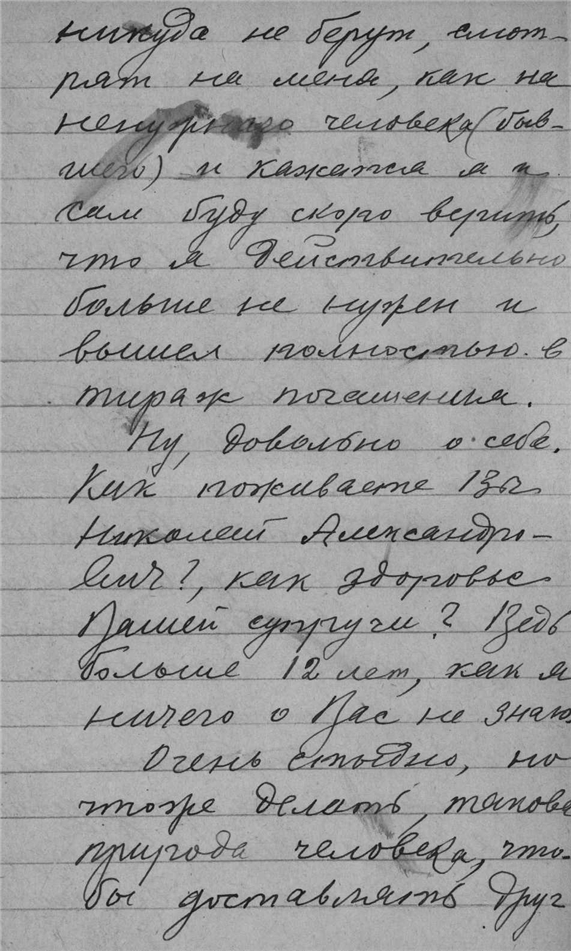 никуда не берут, смот-
рят на меня, как на
ненужного человека (быв-
шего) и кажатся я и
сам буду скоро верить,
что я действительно
больше не нужен и
вышел полностью в
тираж погашения.
Ну, довольно о себе.
Как поживаете Вы
Николай Александро-
вич?, как здоровье
Вашей супруги? Ведь
больше 12 лет, как я
ничего о Вас не знаю
Очень стыдно, но
что же делать, такова
природа человека, что-
бы доставлять друг